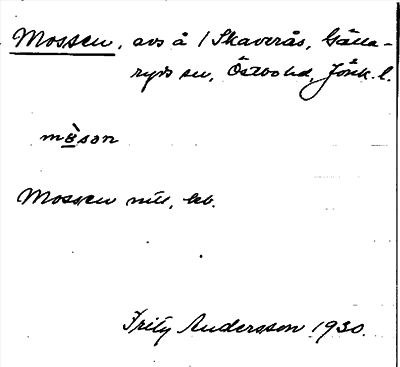 Mossen, avs å 1 Skaverås, Gälla-
ryds sn, Östbo hd, Jönk. l.
mòsən
Mossen
Fritz Andersson 1930.